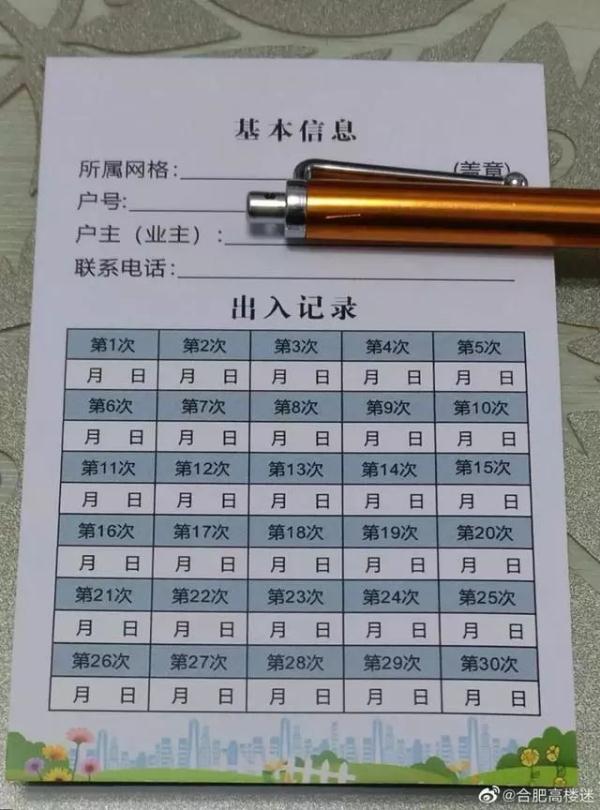 基本信息
所属网格: (盖章)
户号:
户主（业主）:
联系电话:
出入记录
第1次 第2次 第3次 第4次 第5次
月 日 月 日 月 日 月 日 月 日
第6次 第7次 第8次 第9次 第10次
月 日 月 日 月 日 月 日 月 日
第11次 第12次 第13次 第14次 第15次
月 日 月 日 月 日 月 日 月 日
第16次 第17次 第18次 第19次 第20次
月 日 月 日 月 日 月 日 月 日
第21次 第22次 第23次 第24次 第25次
月 日 月 日 月 日 月 日 月 日
第26次 第27次 第28次 第29次 第30次
月 日 月 日 月 日 月 日 月 日
@合肥高楼迷